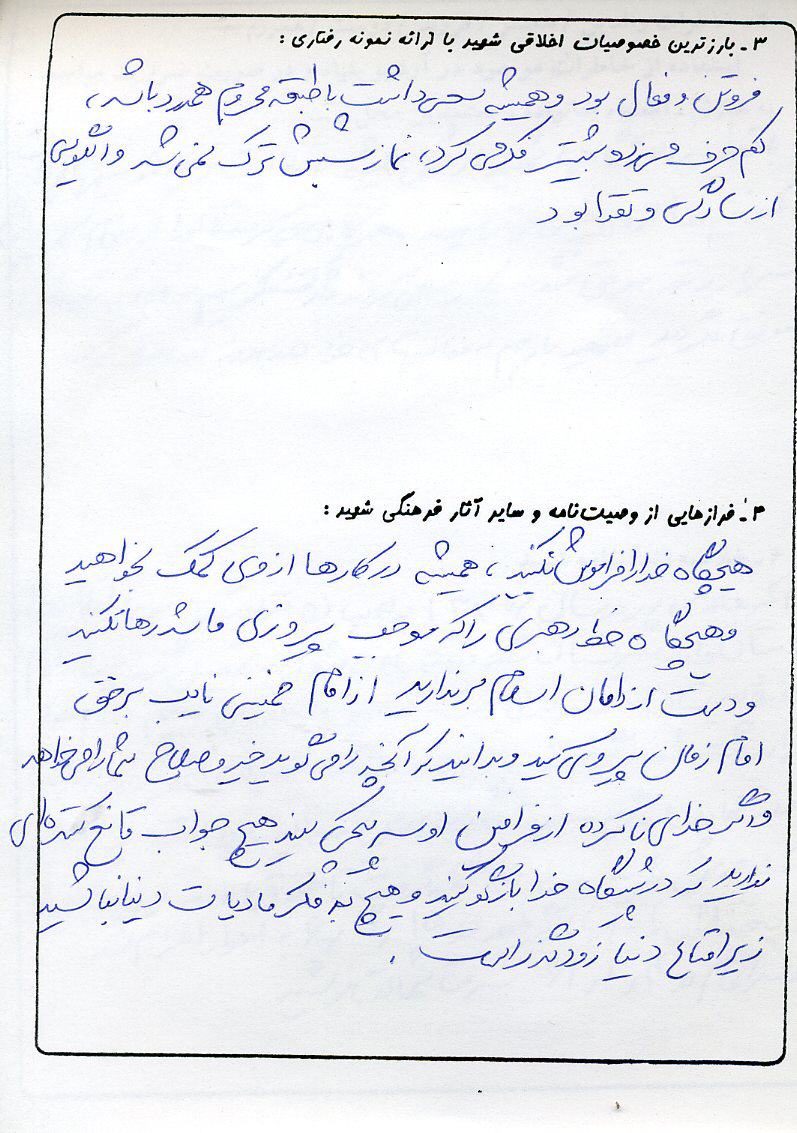 ۳ـ بارزترین خصوصیات اخلاقی شهید با ارائه نمونه رفتاری :
فروتن و فعال بود و همیشه سعی داشت با طبقه محروم همدرد باشد،
کم حرف می‌زد و بیشتر فکر می کرد، نماز شبش ترک نمی شد و الگویی
از سادگی و تقوا بود
۴ـ فرازهایی از وصیت‌نامه و سایر آثار فرهنگی شهید :
هیچگاه خدا را فراموش نکنید، همیشه در کارها از وی کمک بخواهید
و هیچگاه خط رهبری را که موجب پیروزی ما شد رها نکنید
و دست از دامان اسلام برندارید از امام خمینی نایب بر حق
امام زمان پیروی کنید و بدانید که آنچه را می گوید خیر و صلاح شما را می خواهد
و اگر خدای نا کرده از فرامین او سرپیچی کنید هیچ جواب قانع کننده‌ای
ندارید که در پیشگاه خدا بازگو کنید و هیچ به فکر مادیات دنیا نباشید
زیرا متاع دنیا زودگذر است .